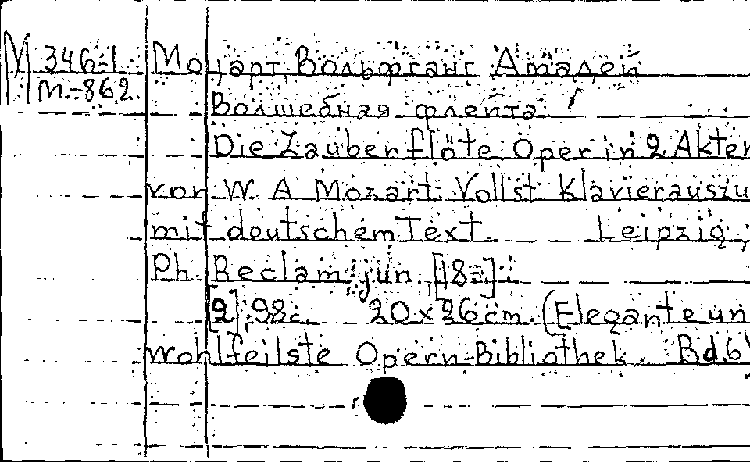 М 346-1 Моцарт, Вольфганг Амадей
М-862
Волшебная флейта
Die Zauberflöte Oper in 2 Akten
von W. A Mozart. Vollst Klavierauszu
mit deutschem Text. Leipzig,
Ph. Reclam jun, [18-]
[2], 98с. 20x26cm. (Elegante un
wohlfeilste Opern-Bibliothek. Bd.6)